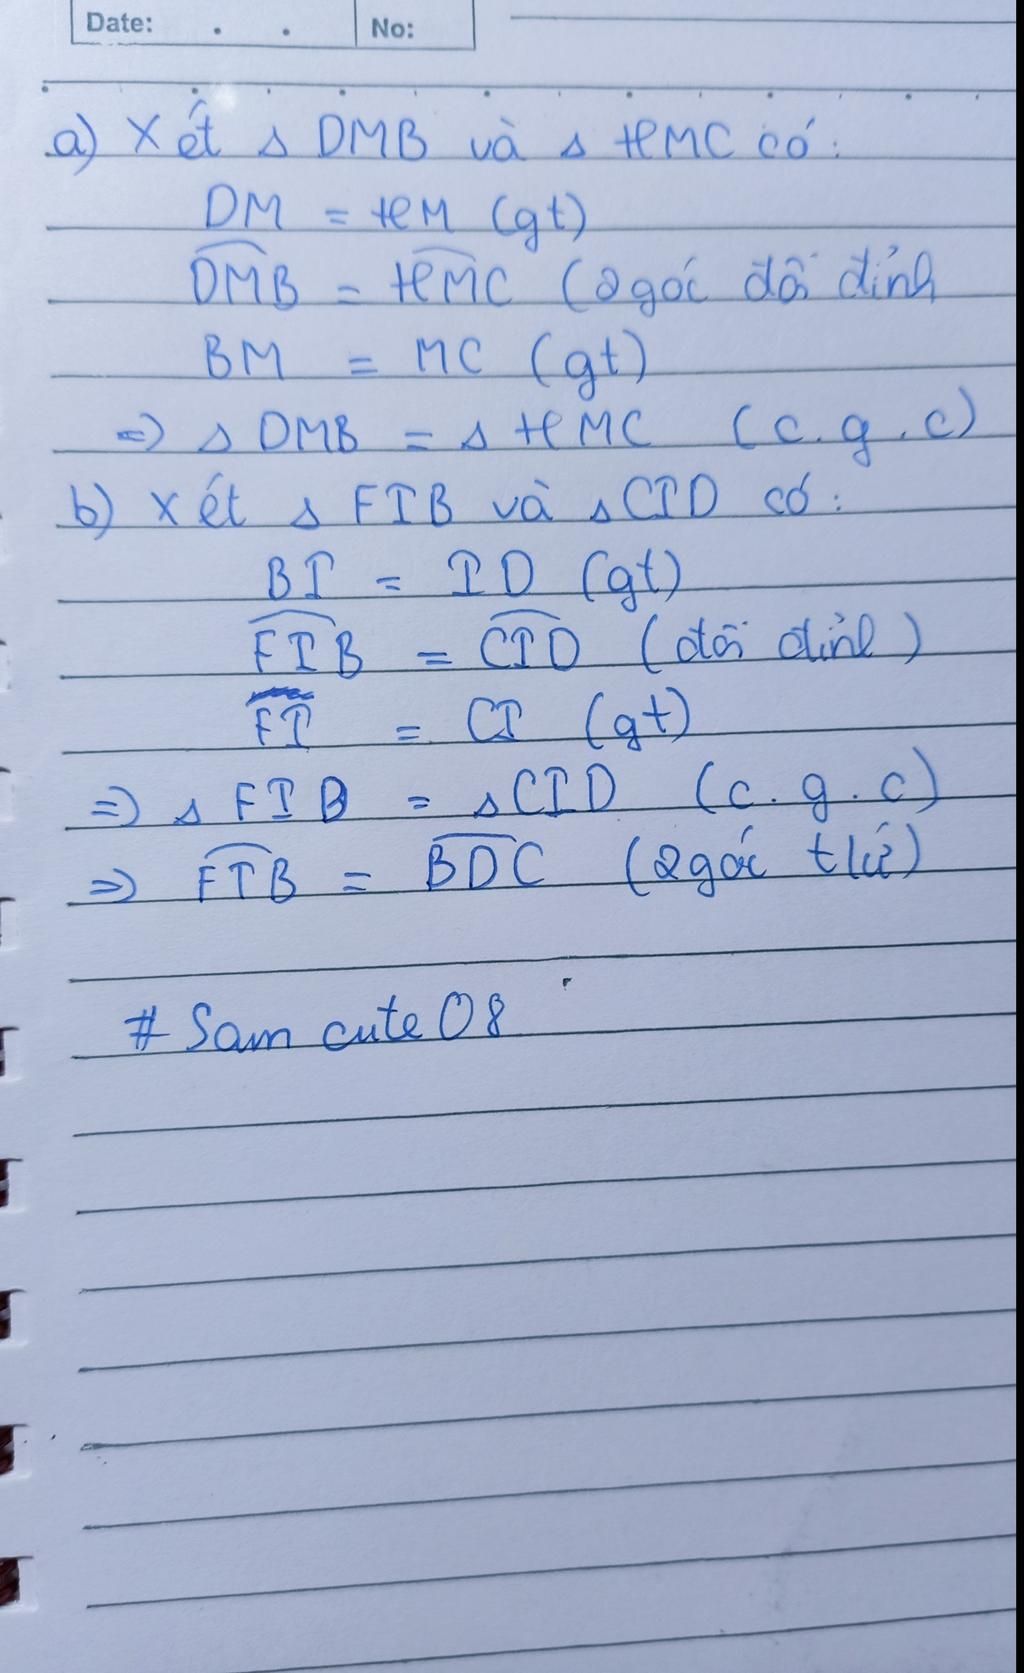 Date: . . No:
a) Xét Δ DMB và Δ HMC có:
DM = HM (gt)
DMB = HMC (2 góc đối đỉnh
BM = MC (gt)
=> Δ DMB = Δ HMC (c.g.c)
b) Xét Δ FIB và Δ CID có:
BI = ID (gt)
FIB = CID (đối đỉnh)
FI = CI (gt)
=> Δ FIB = Δ CID (c.g.c)
=> FIB = BDC (2 góc t/ứ)
# Sam cute 08